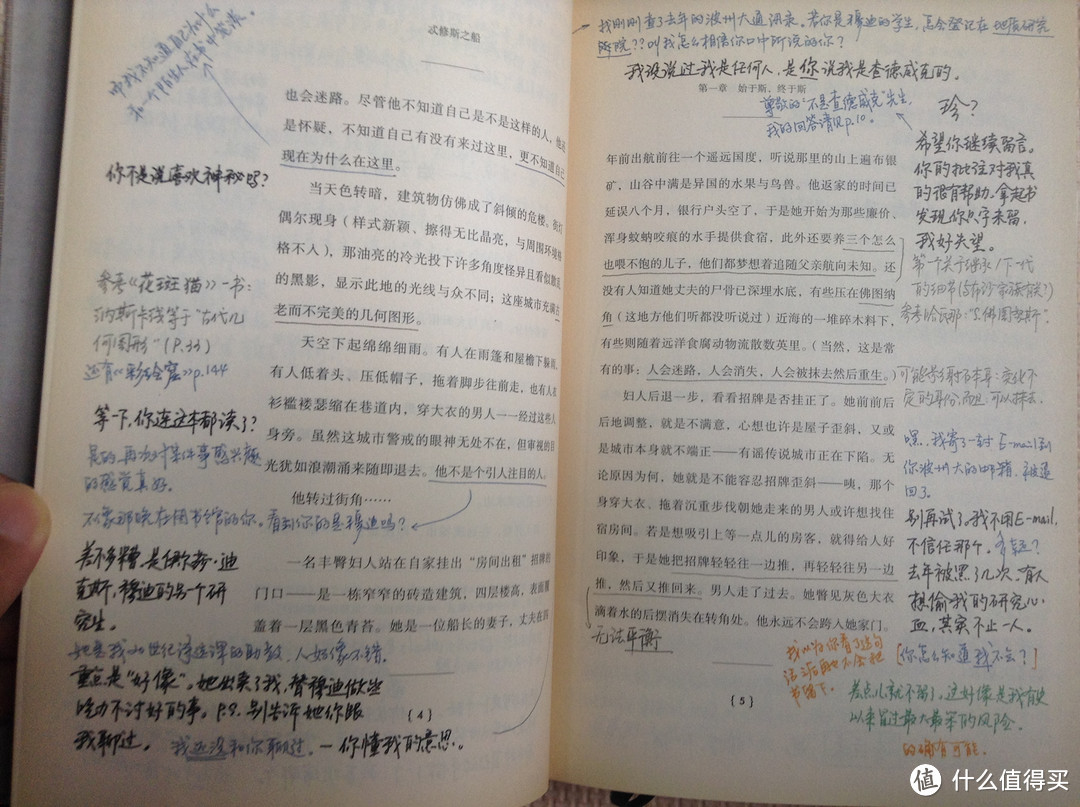 忒修斯之船
中我不知道自己为什么
和一个陌生人在书中笔谈
也会迷路。尽管他不知道自己是不是这样的人，他还
是怀疑，不知道自己有没有来过这里，更不知道自己
现在为什么在这里。
你不是说喜欢神秘吗？
当天色转暗，建筑物仿佛成了斜倾的危楼。街灯
偶尔现身（样式新颖、擦得无比晶亮，与周围环境
格不入），那油亮的冷光投下许多角度怪异且看似
的黑影，显示此地的光线与众不同；这座城市充满古
老而不完美的几何图形。
参考《花斑猫》一书：
纳斯卡线等于“古代几
何图形”（P.33）
还有《彩绘窟》p.144
天空下起绵绵细雨。有人在雨篷和屋檐下躲雨，
有人低着头、压低帽子，拖着脚步往前走，也有人
衫褴褛瑟缩在巷道内，穿大衣的男人一一经过这些人
身旁。虽然这城市警戒的眼神无处不在，但审视的目
光犹如浪潮涌来随即退去。他不是个引人注目的人。
他转过街角……
等一下，你连这本都读了？
是的，再次对某件事感兴趣
的感觉真好。
不像那晚在图书馆的你。看到你的是穆迪吗？
一名丰臀妇人站在自家挂出“房间出租”招牌的
门口——是一栋窄窄的砖造建筑，四层楼高，表面覆
盖着一层黑色青苔。她是一位船长的妻子，丈夫在
差不多糟，是伊尔莎·迪
克斯，穆迪的另一个研
究生。
她是我 的助教，人好像不错。
重点是“好像”。她出卖了我，替穆迪做些
吃力不讨好的事。P.9. 别告诉她你跟
我聊过。
我还没和你聊过，—你懂我的意思。
{4}
我刚刚查了去年的波州大通讯录。若你是穆迪的学生，怎会登记在地质研究
学院？？叫我怎么相信你口中所说的你？
我没说过我是任何人，是你说我是查德威克的。
第一章 始于斯，终于斯
尊敬的“不是查德威克”先生，
我的回答请见p.10。
年前出航前往一个遥远国度，听说那里的山上遍布银
矿，山谷中满是异国的水果与鸟兽。他返家的时间已
延误八个月，银行户头空了，于是她开始为那些廉价、
浑身蚊蚋咬痕的水手提供食宿，此外还要养三个怎么
也喂不饱的儿子，他们都梦想着追随父亲航向未知。还
没有人知道她丈夫的尸骨已深埋水底，有些压在佛图纳
角（这地方他们听都没听说过）近海的一堆碎木料下，
有些则随着远洋食腐动物流散数英里。（当然，这是常
有的事：人会迷路，人会消失，人会被抹去然后重生。）
妇人后退一步，看看招牌是否挂正了。她前前后
后地调整，就是不满意，心想也许是屋子歪斜，又或
是城市本身就不端正——有谣传说城市正在下陷。无
论原因为何，她就是不能容忍招牌歪斜——咦，那个
身穿大衣、拖着沉重步伐朝她走来的男人或许想找住
宿房间。若是想吸引上等一点儿的房客，就得给人好
印象，于是她把招牌轻轻往一边推，再轻轻往另一边
推，然后又推回来。男人走了过去。她瞥见灰色大衣
滴着水的后摆消失在转角处。他永远不会跨入她家门。
无法平衡
珍？
希望你继续留言。
你的批注对我真
的很有帮助。拿起书
发现你只字未留，
我好失望。
第一个关于继承/下一代
的细节
可能影射石察：变化不
定的身份，而且可以抹去。
嘿，我寄了一封E-mail到
你波州大的邮箱，被退
回了。
别再试了。我不用E-mail，
不信任那个。
去年被黑了几次，有人
想偷我的研究心
血，其实不止一人。
[你怎么知道我不会？]
我以为你看了这句
话后再也不会把
书留下。
差点儿就不留了。这好像是我有史
以来冒过最大最笨的风险。
的确有可能。
{5}
值 什么值得买